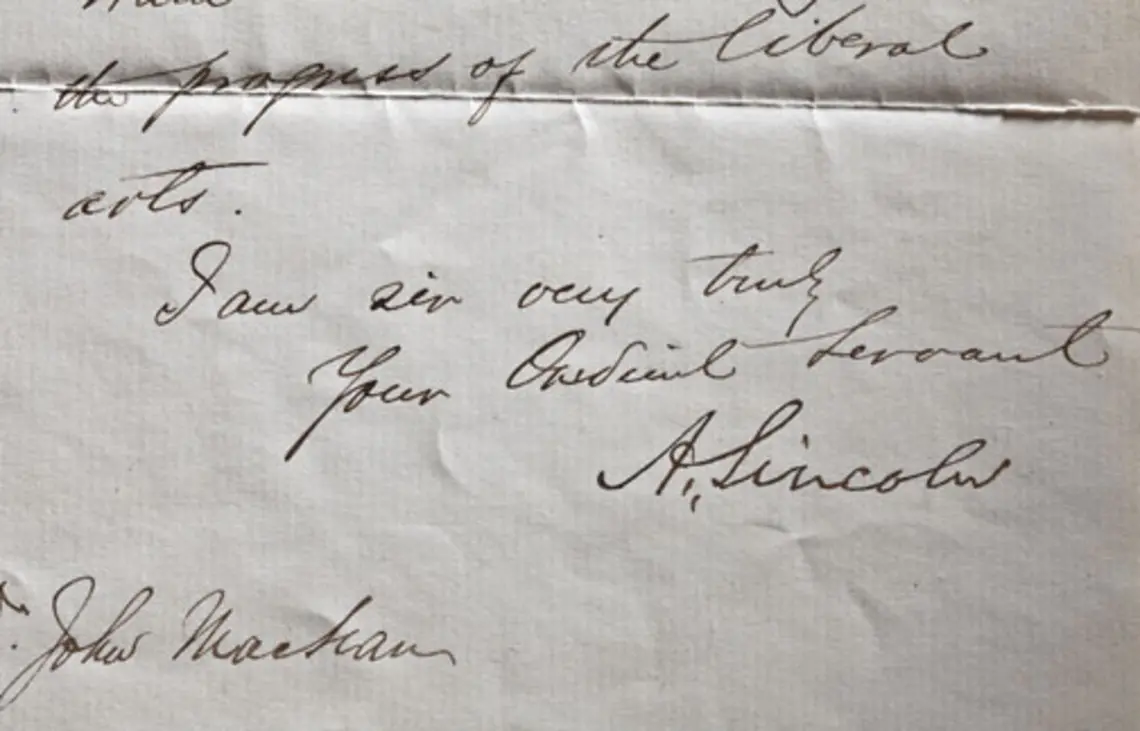 the progress of the liberal
arts.
I am sir very truly
Your Obedient Servant
A. Lincoln
John